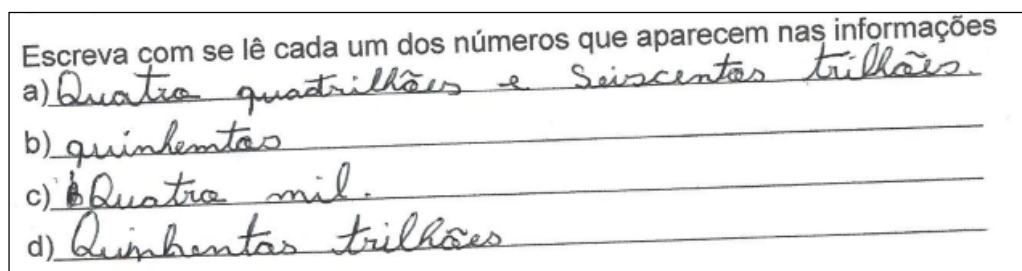 Escreva com se lê cada um dos números que aparecem nas informações
a) Quatro quadrilhões e Seiscentos trilhões.
b) quinhemtos
c) Quatro mil.
d) Quinhentos trilhões